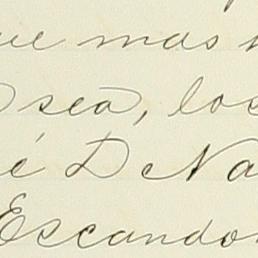 ue mas
Osea, los
é D Na
Escandon